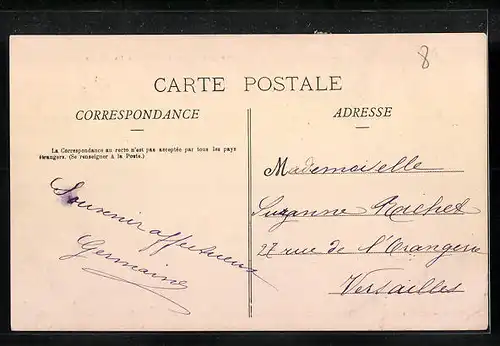 8
CARTE POSTALE
CORRESPONDANCE
ADRESSE
La Correspondance au recto n'est pas acceptée par tous les pays
étrangers. (Se renseigner à la Poste.)
Souvenir affectueux
Germaine
Mademoiselle
Suzanne Rachet
27 rue de l'Orangerie
Versailles